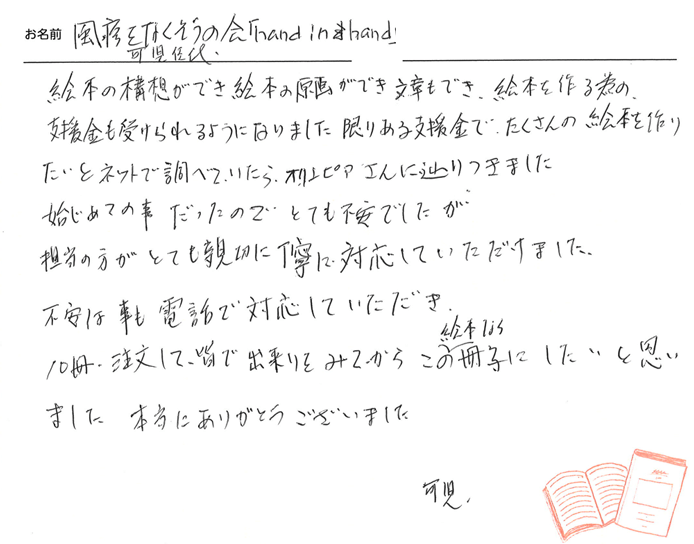 お名前 風疹をなくそうの会「hand in hand」
可児佳代.
絵本の構想ができ絵本の原画ができ文章もでき、絵本を作る為の、
支援金も受けられるようになりました 限りある支援金で、たくさんの 絵本を作り
たいとネットで調べていたら、オリンピア さんに辿りつきました
始じめての事 だったので とても不安でしたが
担当の方が とても親切に丁寧に対応していただけました、
不安な事も 電話で対応していただき、
絵本なら
10冊、注文して、皆で出来栄をみてから この冊子にしたいと思い
ました 本当にありがとうございました
可児.